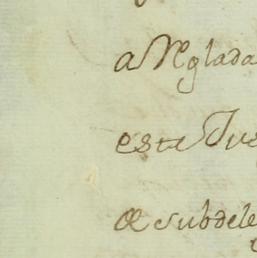 a Reglada
este Jus
de subdele